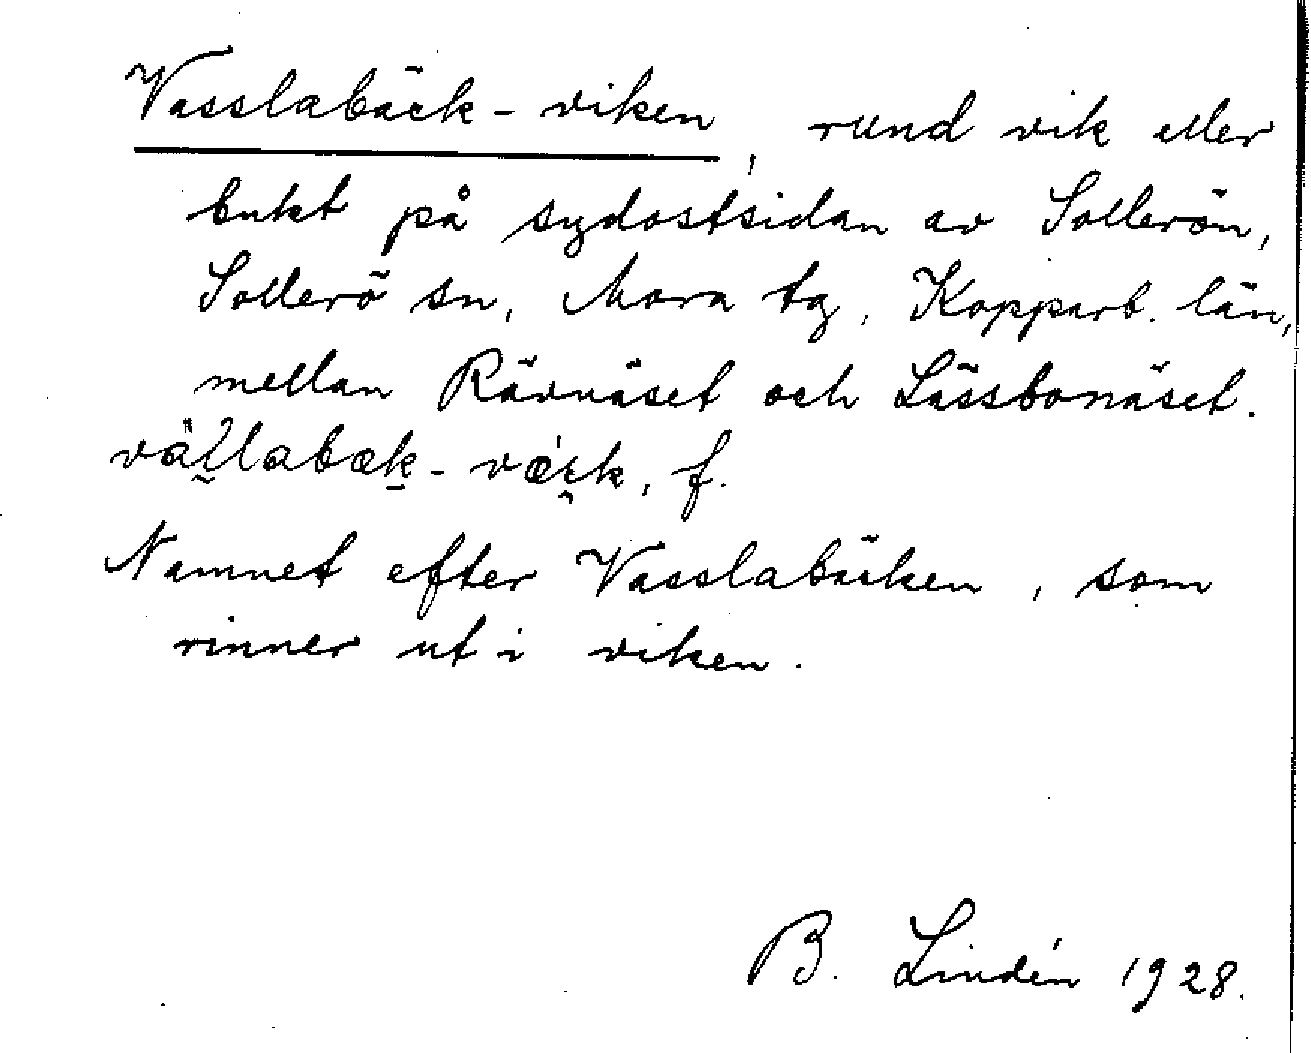 Vasslabäck-viken, rund vik eller
bukt på sydostsidan av Sollerön,
Sollerö sn, Mora tg, Kopparb. län,
mellan Rävnäset och Lässbonäset.
f.
Namnet efter Vasslabäcken, som
rinner ut i viken.
B. Lindén 1928.